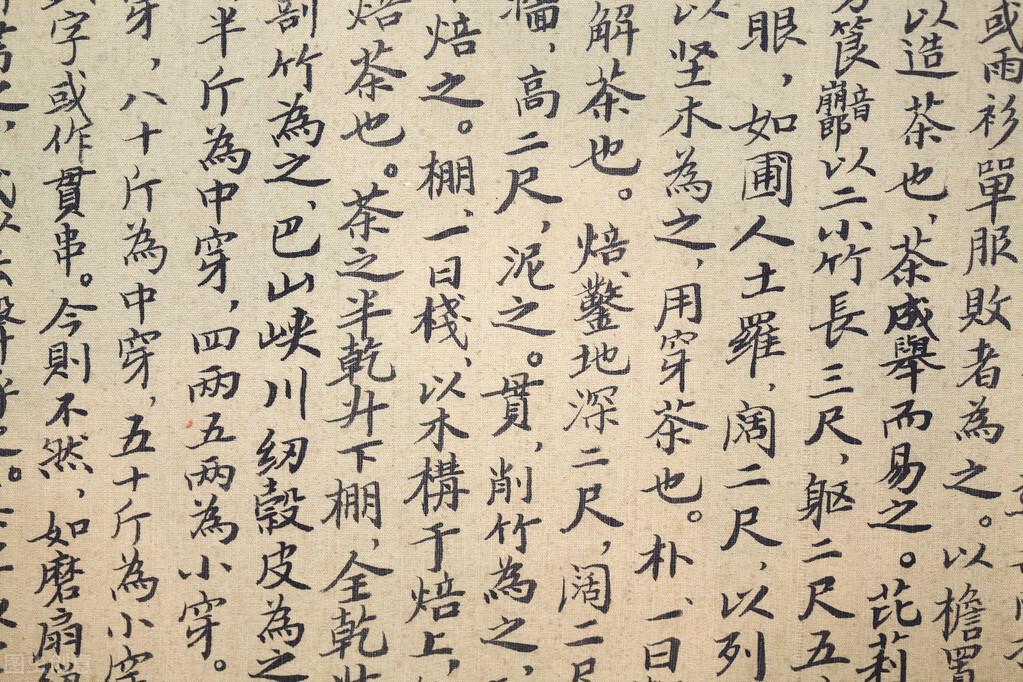 或雨衫單服敗者為之。以檐置
以造茶也，茶成舉而易之。芘莉
筤崩音郎以二小竹長三尺，躯二尺五
眼，如圃人土羅，阔二尺，以列
以坚木為之，用穿茶也。朴，一曰
解茶也。焙、鑿地深二尺，阔二尺
墻，高二尺，泥之。貫，削竹為之，
焙之。棚，一曰棧，以木構于焙上，
焙茶也。茶之半乾升下棚，全乾
剖竹為之、巴山峡川纫縠皮為之
半斤為中穿，四两五两為小穿。
穿，八十斤為中穿，五十斤為小穿
字或作貫串。今則不然，如磨扇彈